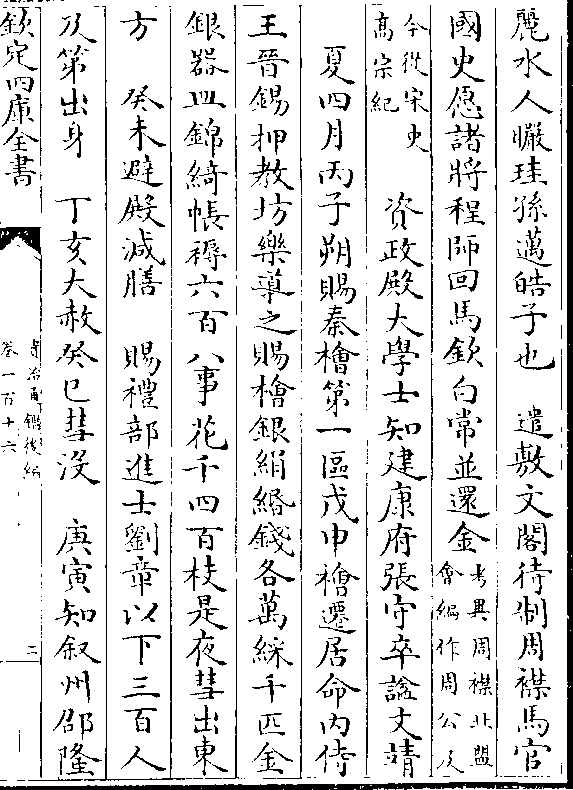 麗水人巘珪孫邁皓子也　遣敷文閣待制周襟馬官
國史愿諸將程師回馬欽白常並還金考異周襟北盟
會編作周公及
今從宋史
高宗紀　資政殿大學士知建康府張守卒諡文靖
夏四月丙子朔賜秦檜第一區戊申檜遷居命内侍
王晉錫押教坊樂導之賜檜銀絹緡錢各萬綵千匹金
銀器皿錦綺帳褥六百八事花千四百枝是夜彗出東
方　癸未避殿減膳　賜禮部進士劉章以下三百人
及第出身　丁亥大赦癸巳彗没　庚寅知叙州邵隆
欽定四庫全書
資治通鑑後編
卷一百十六
二